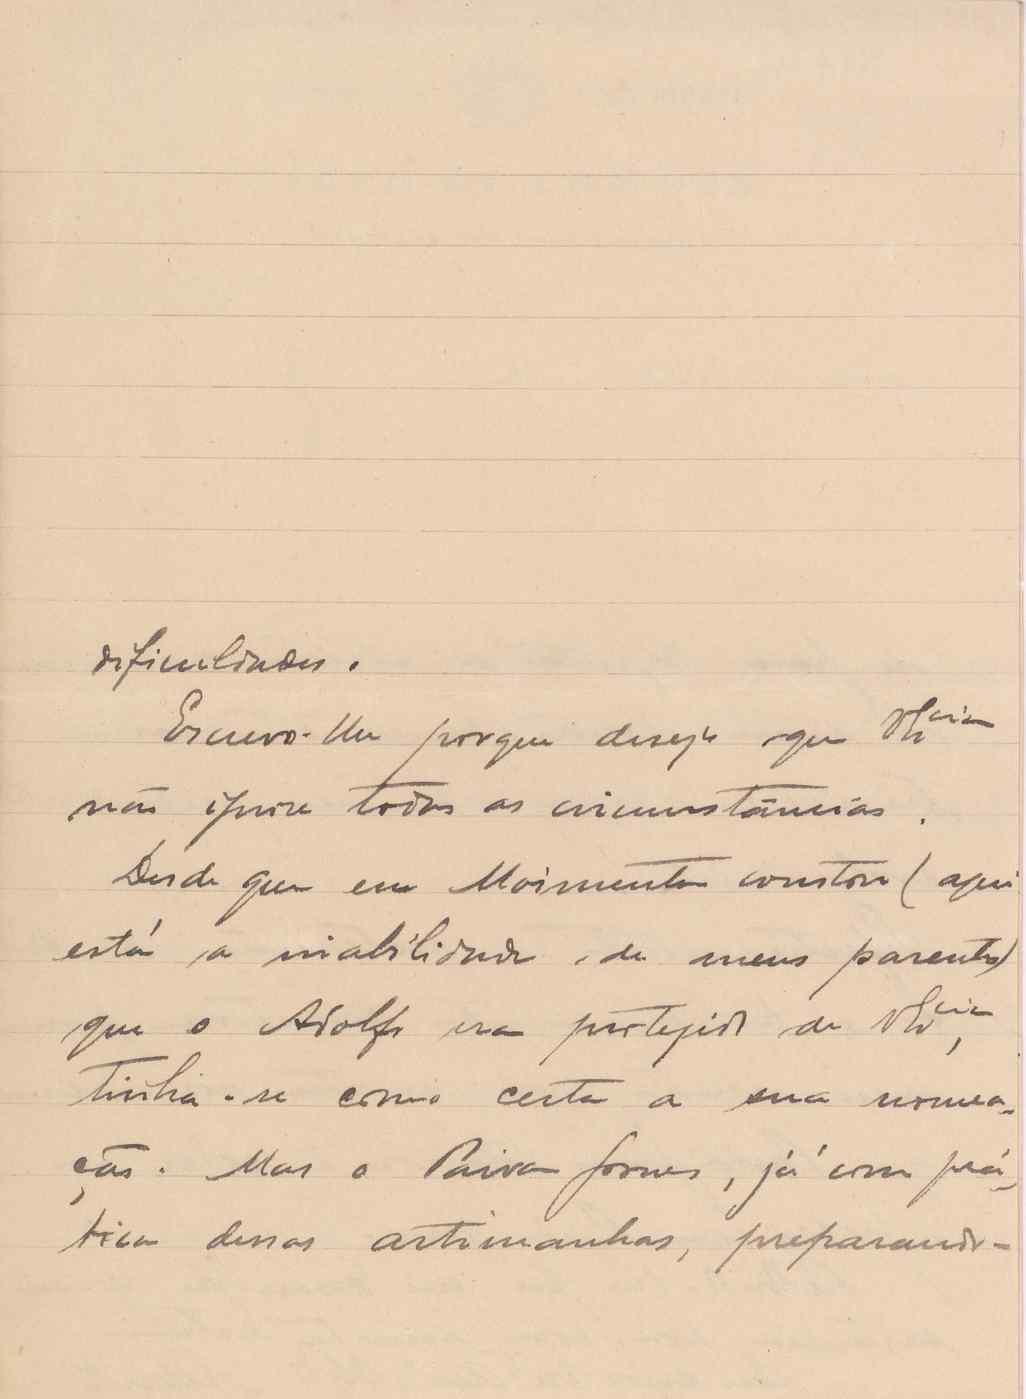 dificuldades.
Escrevo-lhe porque desejo que V. Ex.cia
não ignore todas as circunstâncias.
Desde que em Moimenta constou (aqui
está a inabilidade de meus parentes)
que o Adolfo era protegido de V. Ex.cia,
tinha-se como certa a sua nomea-
ção. Mas o Paiva Gomes, já com prá-
tica dessas artimanhas, preparando-